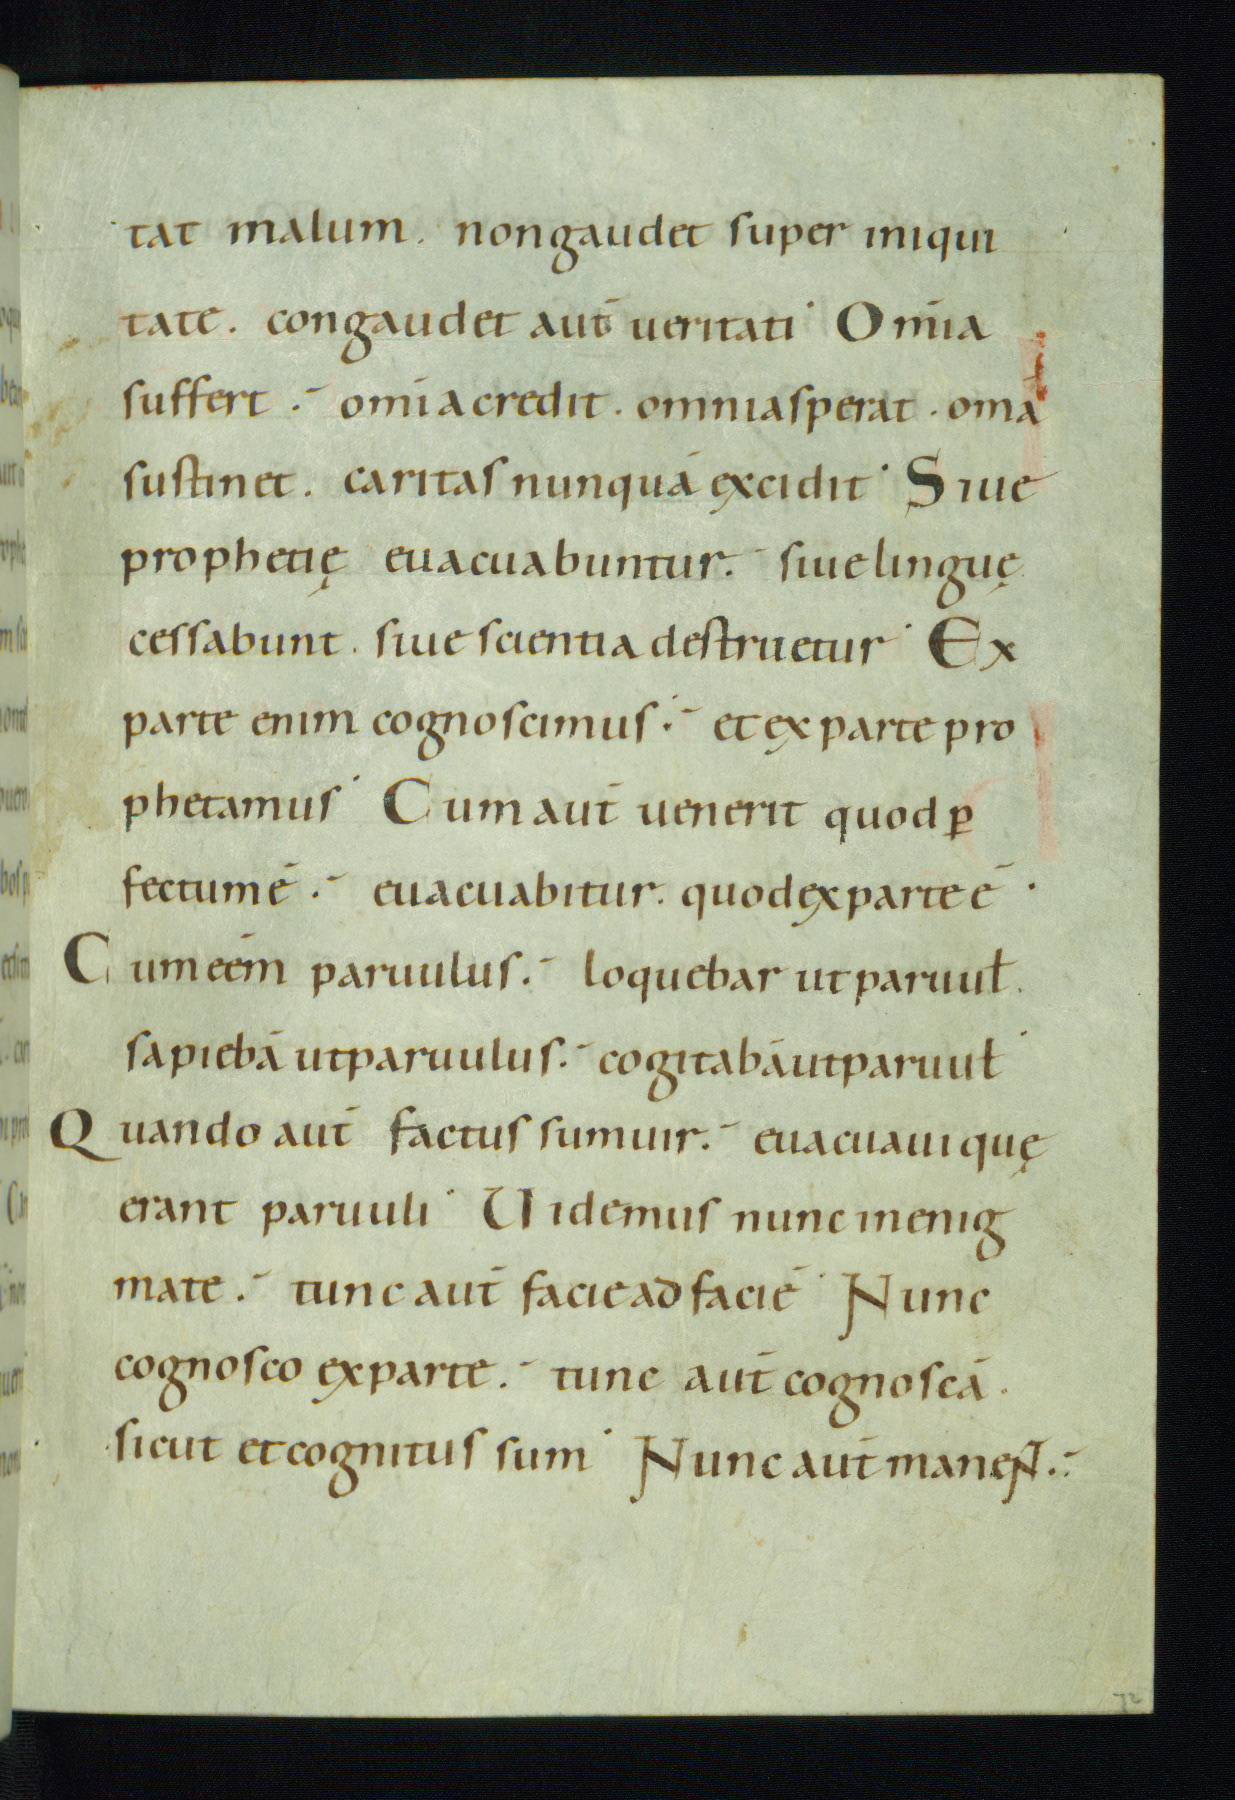 tat malum. non gaudet super iniqui
tate. congaudet aut̄ ueritati· Om̄ia
suffert .- om̄ia credit. omnia sperat. om̄a
sustinet. caritas nunquā excidit· Siue
prophetię euacuabuntur.- siue linguę
cessabunt. siue scientia destruetur· Ex
parte enim cognoscimus.- et ex parte pro
phetamus· Cum aut̄ uenerit quod ꝑ
fectum ē.- euacuabitur. quod ex parte ē·
Cum eēm paruulus.- loquebar ut paruul̄.
sapiebā ut paruulus.- cogitabā ut paruul̄·
Quando aut̄ factus sum uir.- euacuaui quę
erant paruuli· Uidemus nunc in enig
mate.- tunc aut̄ facie ad faciē· Nunc
cognosco ex parte.- tunc aut̄ cognoscā.
sicut et cognitus sum· Nunc aut̄ manent.-
72